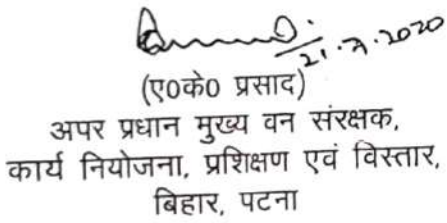 21.7.2020
(ए०के० प्रसाद)
अपर प्रधान मुख्य वन संरक्षक,
कार्य नियोजना, प्रशिक्षण एवं विस्तार,
बिहार, पटना